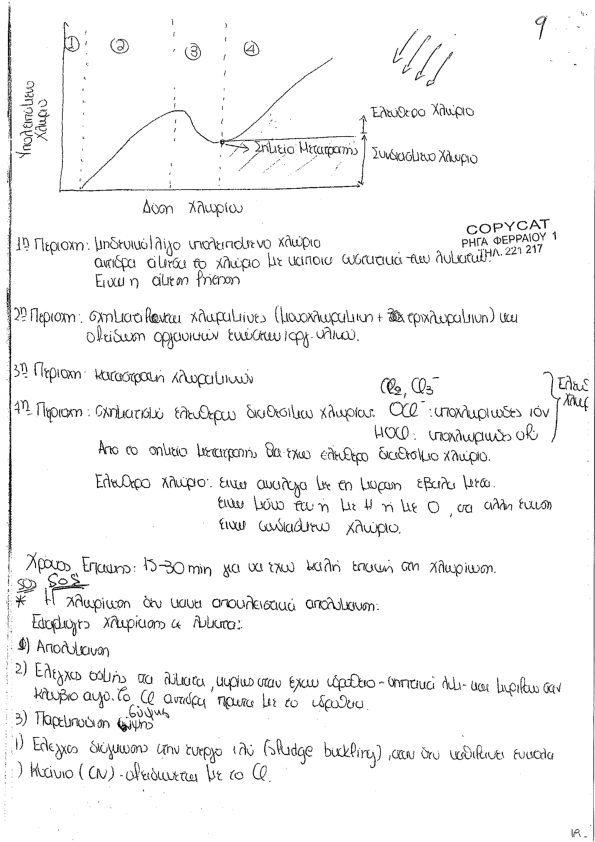 9
① ② ③ ④
Υπολειπόμενο Χλώριο
Ελεύθερο Χλώριο
Σημείο Μετατροπής
Συνδιασμένο Χλώριο
Δόση Χλωρίου
COPYCAT
ΡΗΓΑ ΦΕΡΡΑΙΟΥ 1
ΤΗΛ. 221 217
1η Περιοχή: Μηδενικό/λίγο υπολειπόμενο χλώριο
αντιδρά άμεσα το χλώριο με κάποια συστατικά των λυμάτων.
Είναι η άμεση
2η Περιοχή: σχηματίζονται χλωραμίνες (μονοχλωραμίνη + τριχλωραμίνη) και
οξείδωση οργανικών ενώσεων/οργ. υλικού.
3η Περιοχή: καταστροφή χλωραμινών
Cl2, Cl3-
4η Περιοχή: Σχηματισμό ελεύθερου διαθέσιμου χλωρίου. OCl-: υποχλωριώδες ιόν
HOCl: υποχλωριώδες οξύ
Ελευθ
Χλωρ
Από το σημείο μετατροπής θα έχω ελεύθερο διαθέσιμο χλώριο.
Ελεύθερο χλώριο: είναι ανάλογα με τη μορφή έβαλα μέσα.
είναι μόνο του ή με Η ή με Ο, σε άλλη ένωση
είναι συνδιασμένο χλώριο.
Χρόνος Επαφής: 15-30 min για να έχω καλή επαφή στη χλωρίωση.
SOS SOS
* Η χλωρίωση δεν κάνει αποκλειστικά απολύμανση.
Εφαρμογές χλωρίωσης σε λύματα:
1) Απολύμανση
2) Έλεγχος οσμής στα λύματα, κυρίως όταν έχουν υδρόθειο - σηπτικά λύμ- και μυρίζουν σαν
κλούβιο αυγό. Το Cl αντιδρά πρώτα με το υδρόθειο.
3) Παρεμπόδιση ζύμωσης
) Έλεγχος διόγκωσης στην ενεργό ιλύ (sludge buckling), όταν δεν καθιζάνει εύκολα
) Κυάνιο (CN) - οξειδώνεται με το Cl.